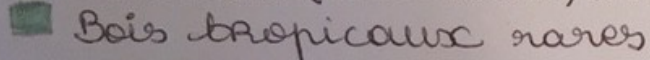 Bois tropicaux rares